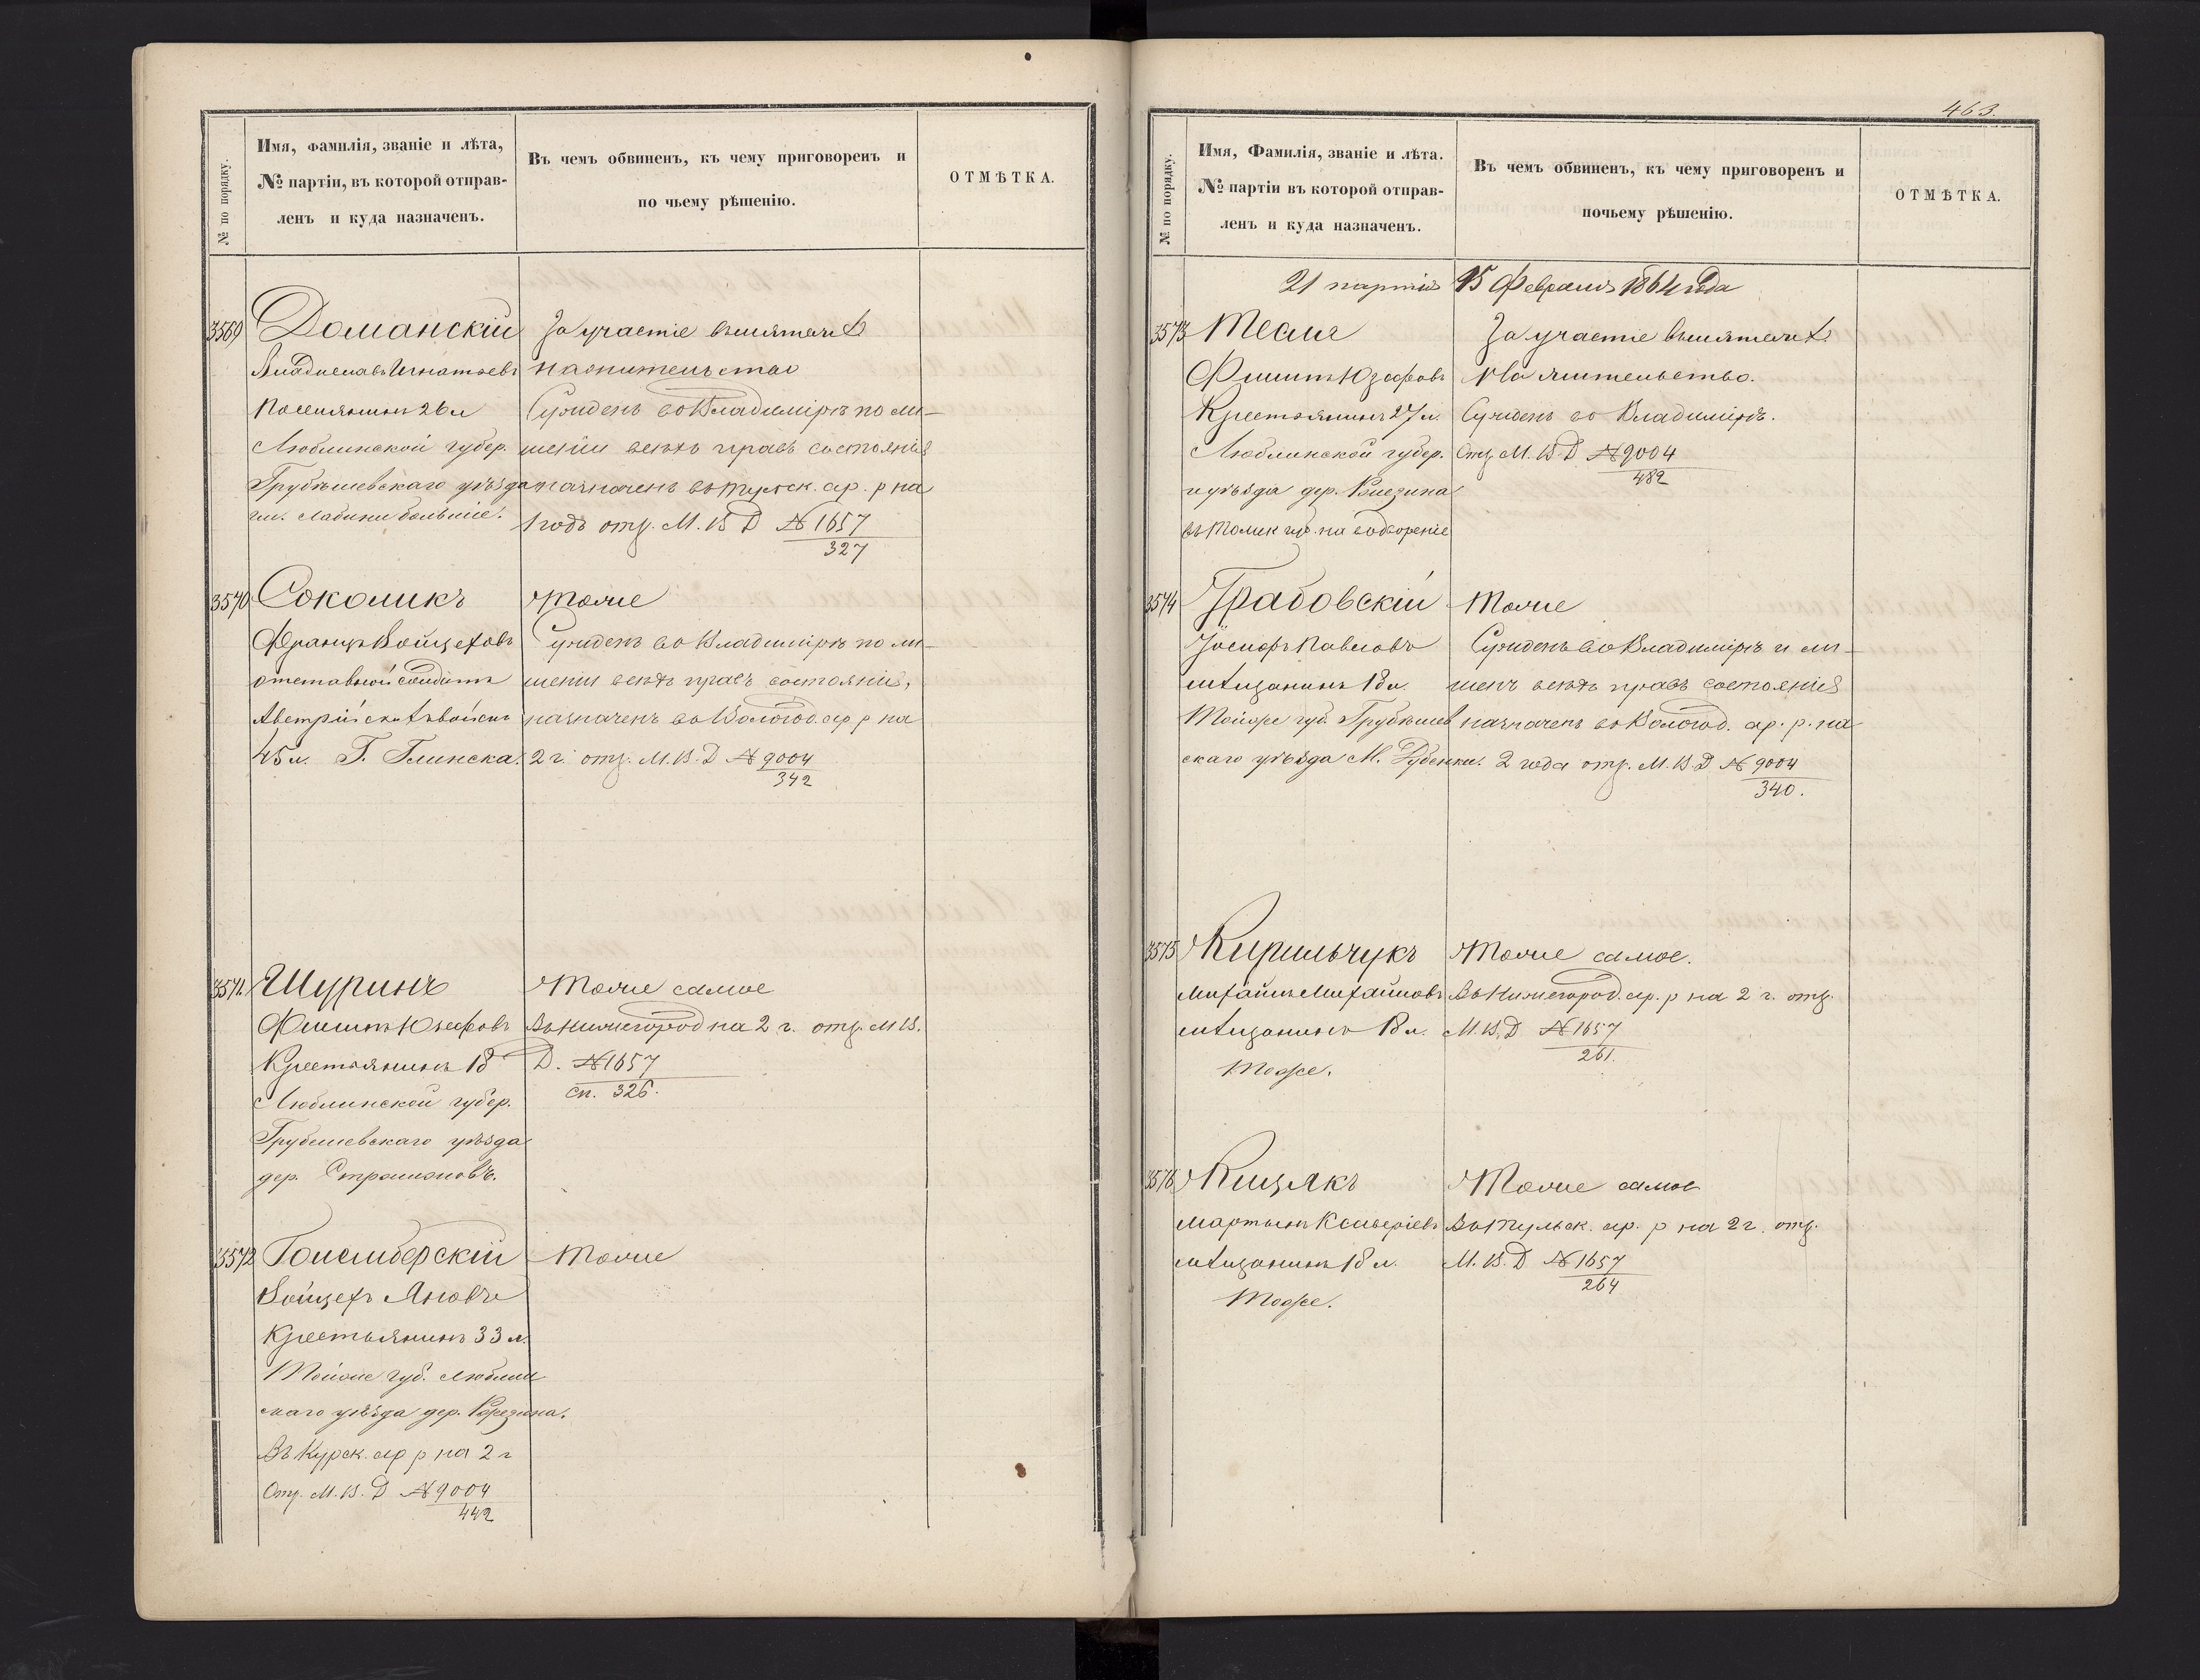 № по порядку.
Имя, фамилія, званіе и лѣта,
№ партіи, въ которой отправ-
ленъ и куда назначенъ.
Въ чемъ обвиненъ, къ чему приговоренъ и
по чьему рѣшенію.
ОТМѢТКА.
3569
Доманскій
Владиславъ Игнатьевъ
Поселянинъ 26 л
Люблинской губер.
Грубешевскаго уѣзда
За участіе въ мятежѣ
Сужденъ во Владимірѣ по ли-
шеніи всѣхъ правъ состоянія
назначенъ въ ар. р на
1 годъ отз. М. В Д № 1657
327
3570
Соколикъ
Францъ Войцеховъ
отставной солдатъ
Австрійскихъ войскъ
45 л. Г. Глинска.
Тоже
Сужденъ во Владимірѣ по ли-
шеніи всѣхъ правъ состоянія,
назначенъ въ Вологод. ар р на
2 г. отз. М. В. Д № 9004
342
3571.
Шуринъ
Филипъ Юзефовъ
Крестьянинъ 18
Люблинской губер.
Грубешевскаго уѣзда
дер.
Тоже самое
Въ Нижегород на 2 г. отз. М В.
Д. № 1657
сп. 326.
3572
Войцехъ Яновъ
Крестьянинъ 33 л.
Тойже губ. Люблин
скаго уѣзда дер.
Въ Курск. ар р на 2 г
Отз. М. В. Д № 9004
442
Тоже
463.
№ по порядку.
Имя, Фамилія, званіе и лѣта.
№ партіи въ которой отправ-
ленъ и куда назначенъ.
Въ чемъ обвиненъ, къ чему приговоренъ и
почьему рѣшенію.
ОТМѢТКА.
21 партія 15 Февраля 1864 года
3573
Филипъ Юзефовъ
Крестьянинъ 27 л.
Люблинской губер.
и уѣзда дер.
въ Томск губ. на водвореніе
За участіе въ мятежѣ
Сужденъ во Владимірѣ.
Отз. М. В Д № 9004
482
3574
Грабовскій
Іосифъ Павловъ
мѣщанинъ 18 л.
Тойже губ. Грубешев
скаго уѣзда М. Дубенки.
Тоже
Сужденъ во Владимірѣ и ли-
шенъ всѣхъ правъ состоянія
назначенъ въ Вологод. ар. р. на
2 года отз. М. В. Д № 9004
340.
3575
Кирильчукъ
Михаилъ Михайловъ
мѣщанинъ 18 л.
Тоже.
Тоже самое.
Въ Нижегород. ар. р на 2 г. отз.
М. В. Д № 1657
261.
3576
Кицякъ
Мартынъ
мѣщанинъ 18 л.
Тоже.
Тоже самое
Въ Тульск. ар. р на 2 г. отз.
М. В. Д № 1657
264